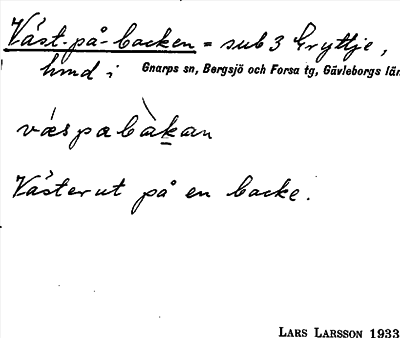 Väst-på-backen = sub 3 Gryttje,
hmd i Gnarps sn, Bergsjö och Forsa tg, Gävleborgs län
væspabàkan
Västerut på en backe.
LARS LARSSON 1933